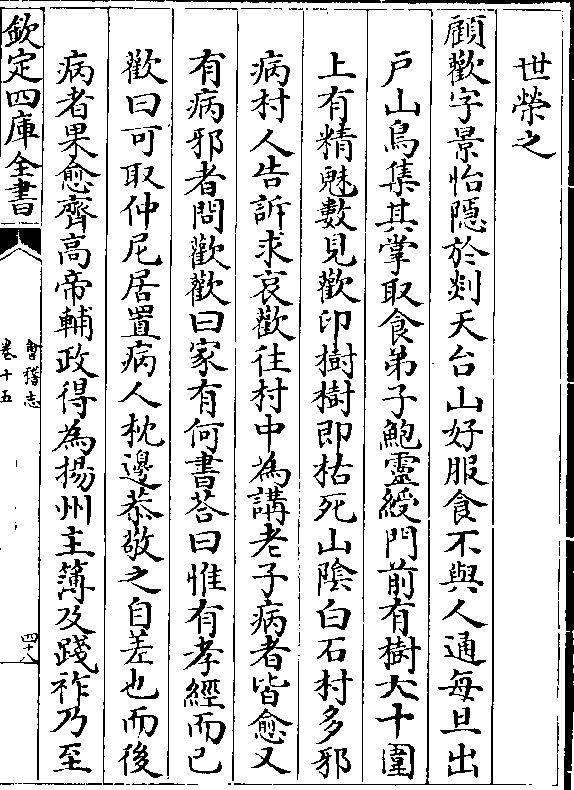 世榮之
顧歡字景怡隱於剡天台山好服食不與人通每旦出
戶山鳥集其掌取食弟子鮑靈綬門前有樹大十圍
上有精魅數見歡印樹樹即枯死山陰白石村多邪
病村人告訴求哀歡往村中為講老子病者皆愈又
有病邪者問歡歡曰家有何書荅曰惟有孝經而已
歡曰可取仲尼居置病人枕邊恭敬之自差也而後
病者果愈齊高帝輔政得為揚州主簿及踐祚乃至
欽定四庫全書
會稽志
卷十五
四十八